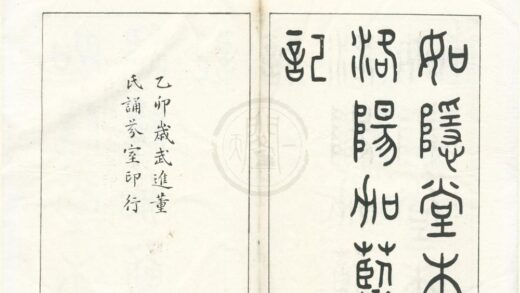 如隱堂本
洛陽加藍
記
乙卯歲武進董
氏誦芬室印行